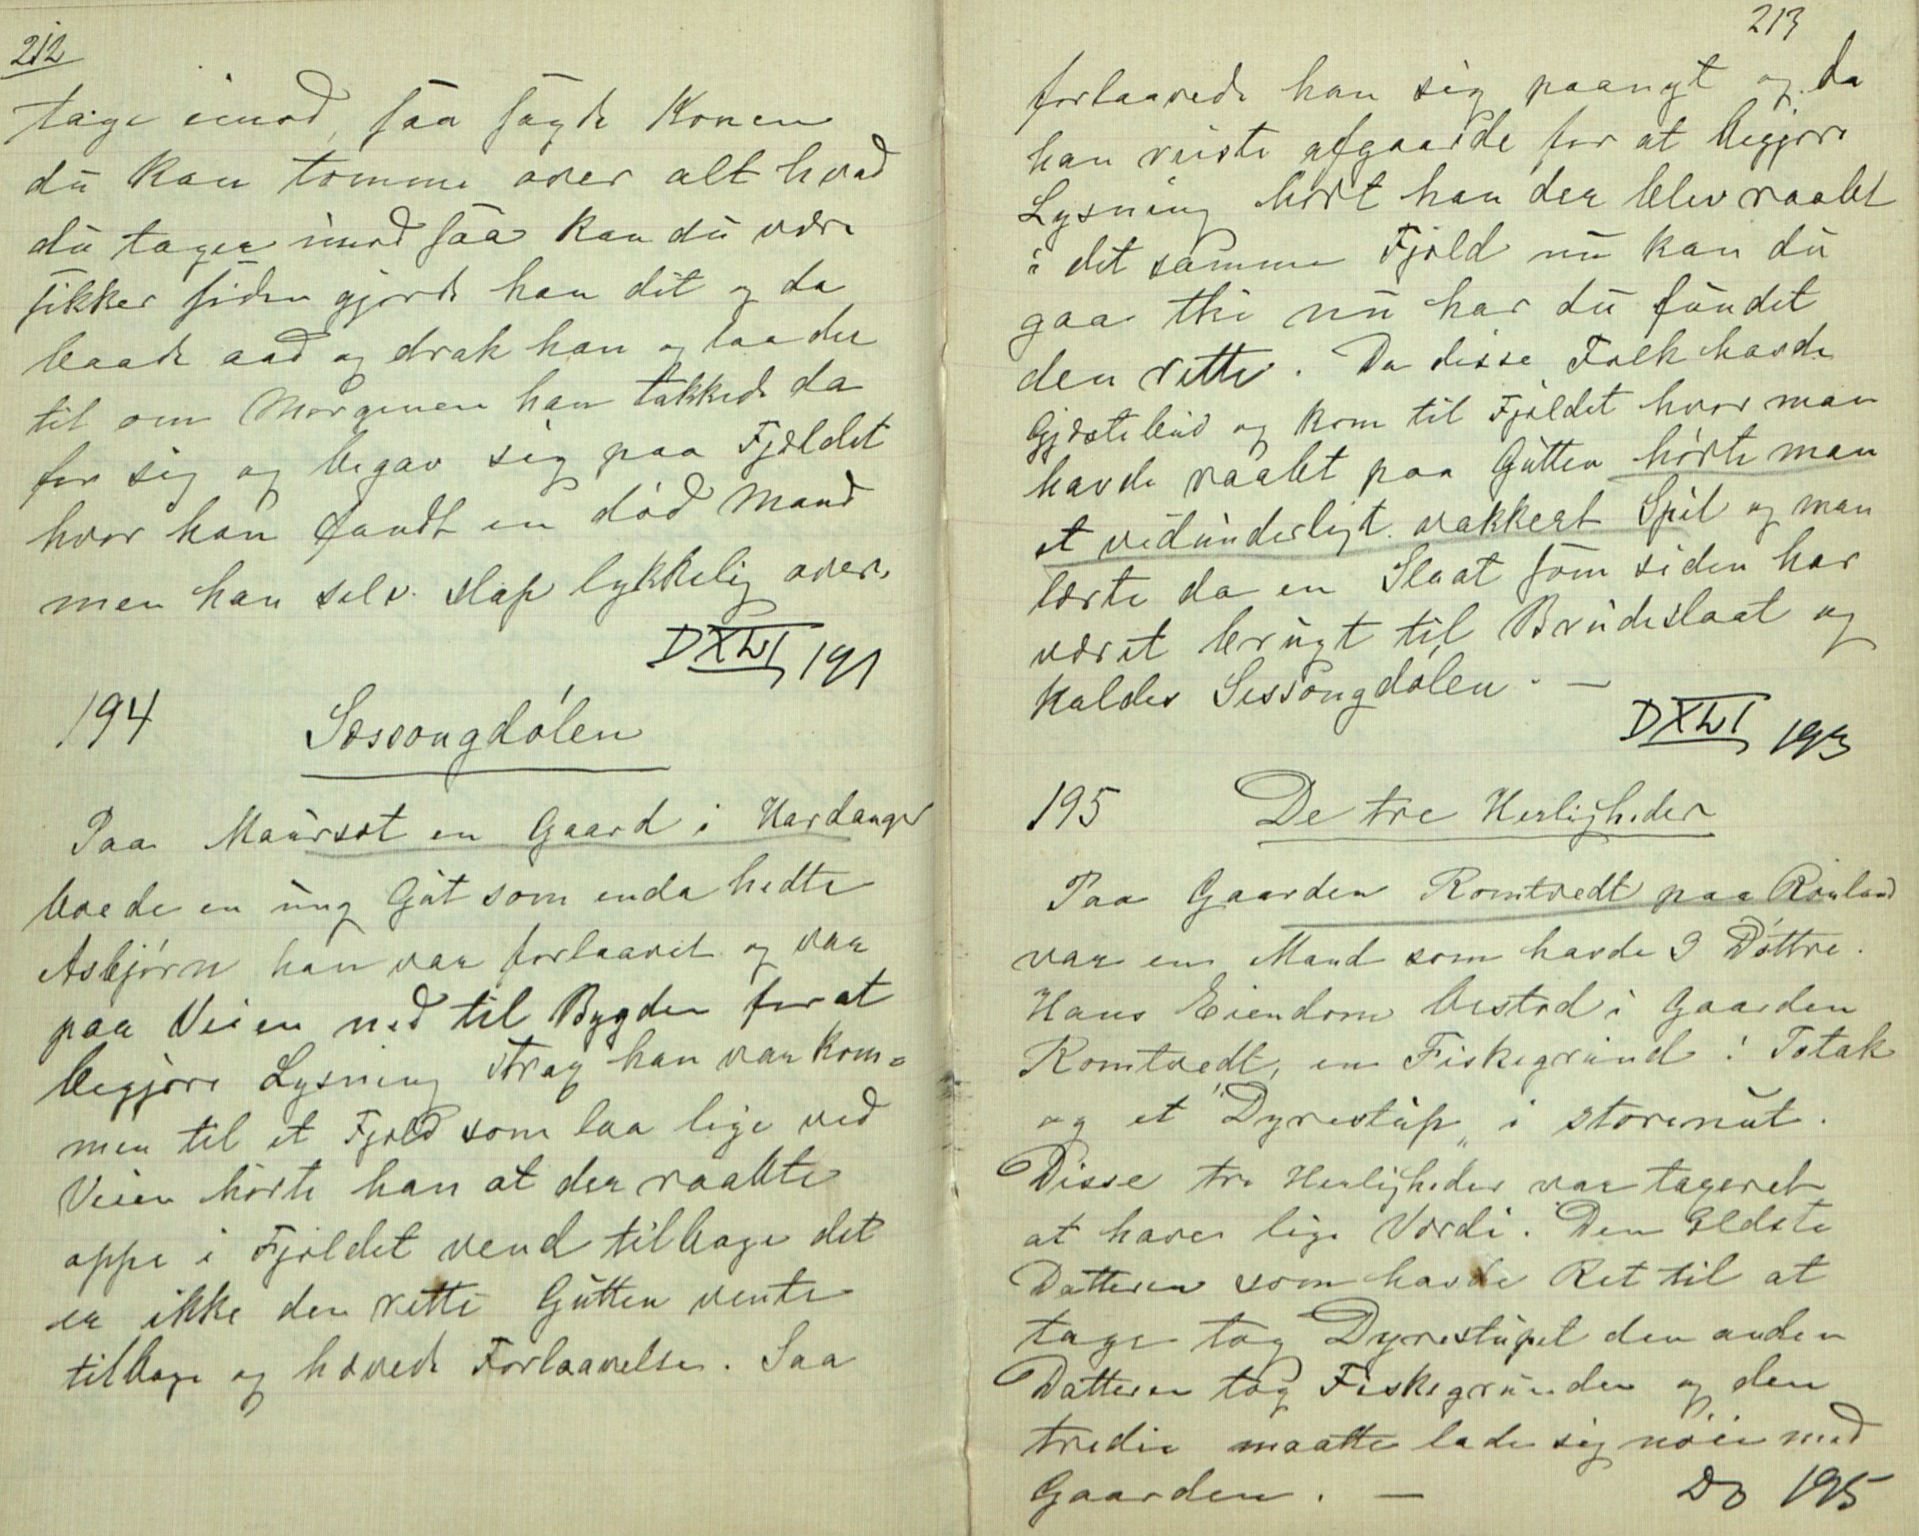 212
tage imod, saa sagde Konen
du kan tømme over alt hvad
du tager imod saa kan du være
sikker siden gjorde han dit og da
baade aad og drak han og laa der
til om Morgenen han takkede da
for sig og begav sig paa Fjeldet
hvor han fandt en død Mand
men han selv slap lykkelig over.
DXLVI 191
194 Sessongdølen
Paa Maurset en Gaard i Hardanger
boede en ung Gut som enda hedte
Asbjørn han var forlaavet og var
paa Veien ned til Bygden for at
begjære Lysning strag han var kom=
men til et Fjeld som laa lige ved
Veien hørte han at der raabte
oppe i Fjeldet vend tilbage det
er ikke den rette Gutten vente
tilbage og hævede Forlaavelse. Saa
213
forlaavede han sig paanyt og da
han reiste afgaarde for at begjære
Lysning hørt han der blev raabt
i det samme Fjeld nu kan du
gaa thi nu har du fundet
den rette. Da disse Folk havde
Gjæstebud og kom til Fjeldet hvor man
havde raabt paa Gutten hørte man
et vidunderligt vakkert Spil og man
lærte da en Slaat som siden har
været brugt til Brudeslaat og
kaldes Sessongdølen. —
DXLVI 193
195 De tre Herligheder
Paa Gaarden Romtvedt paa Rauland
var en Mand som havde 3 Døttre.
Hans Eiendom bestod i Gaarden
Romtvedt, en Fiskegrund i Totak
og et "Dyrestup„ i Storenut.
Disse tre Herligheder var tageret
at haves lige Værdi. Den Eldste
Datteren som havde Ret til at
tage tog Dyrestupet den anden
Datteren tog Fiskegrunden og den
tredie maatte lade sig nøie med
Gaarden. —
Do 195